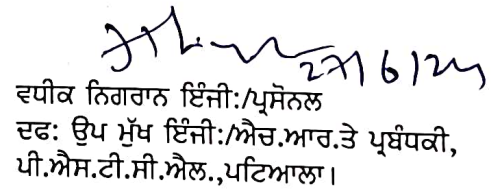 27/6/24
ਵਧੀਕ ਨਿਗਰਾਨ ਇੰਜੀ:/ਪ੍ਰਸੋਨਲ
ਦਫ: ਉਪ ਮੁੱਖ ਇੰਜੀ:/ਐਚ.ਆਰ.ਤੇ ਪ੍ਰਬੰਧਕੀ,
ਪੀ.ਐਸ.ਟੀ.ਸੀ.ਐਲ.,ਪਟਿਆਲਾ।